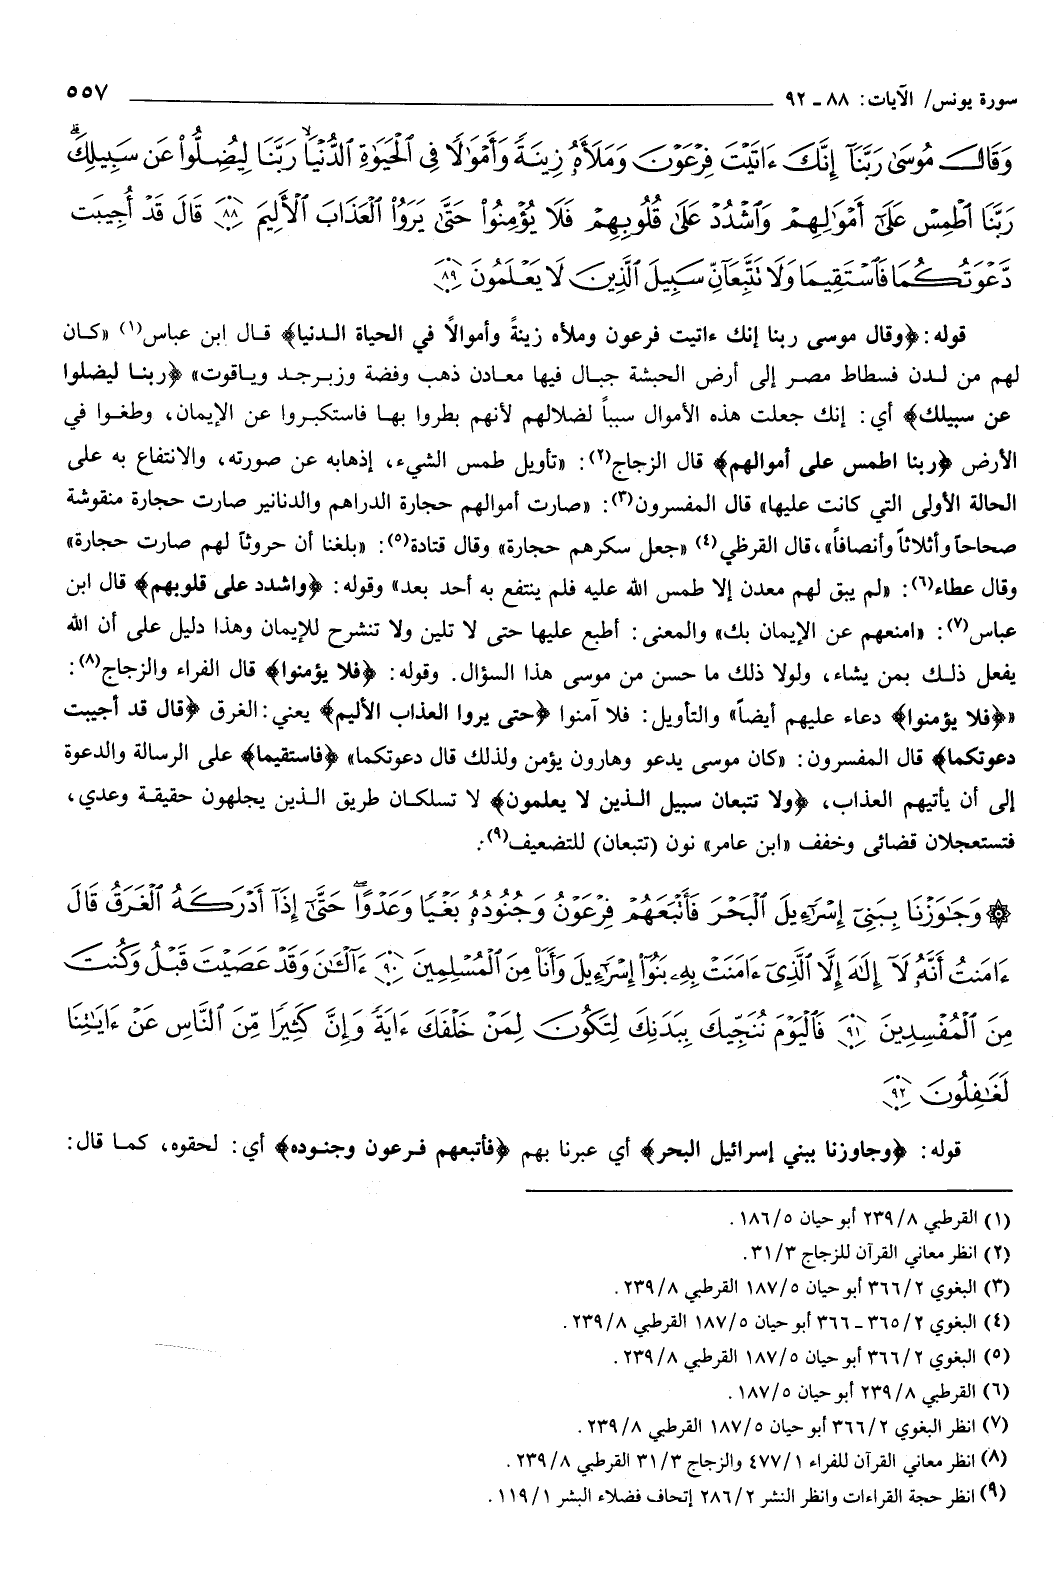 سورة يونس/ الآيات: ٨٨ ـ ٩٢ ٥٥٧
وَقَالَ مُوسَىٰ رَبَّنَآ إِنَّكَ ءَاتَيْتَ فِرْعَوْنَ وَمَلَأَهُۥ زِينَةً وَأَمْوَٰلًا فِى ٱلْحَيَوٰةِ ٱلدُّنْيَا ۙ رَبَّنَا لِيُضِلُّوا۟ عَن سَبِيلِكَ ۖ
رَبَّنَا ٱطْمِسْ عَلَىٰٓ أَمْوَٰلِهِمْ وَٱشْدُدْ عَلَىٰ قُلُوبِهِمْ فَلَا يُؤْمِنُوا۟ حَتَّىٰ يَرَوُا۟ ٱلْعَذَابَ ٱلْأَلِيمَ ٨٨ قَالَ قَدْ أُجِيبَت
دَّعْوَتُكُمَا فَٱسْتَقِيمَا وَلَا تَتَّبِعَآنِّ سَبِيلَ ٱلَّذِينَ لَا يَعْلَمُونَ ٨٩
قوله: ﴿وقال موسى ربنا إنك ءاتيت فرعون وملأه زينةً وأموالاً في الحياة الدنيا﴾ قال ابن عباس(١) «كان
لهم من لدن فسطاط مصر إلى أرض الحبشة جبال فيها معادن ذهب وفضة وزبرجد وياقوت» ﴿ربنا ليضلوا
عن سبيلك﴾ أي: إنك جعلت هذه الأموال سبباً لضلالهم لأنهم بطروا بها فاستكبروا عن الإيمان، وطغوا في
الأرض ﴿ربنا اطمس على أموالهم﴾ قال الزجاج(٢): «تأويل طمس الشيء، إذهابه عن صورته، والانتفاع به على
الحالة الأولى التي كانت عليها» قال المفسرون(٣): «صارت أموالهم حجارة الدراهم والدنانير صارت حجارة منقوشة
صحاحاً وأثلاثاً وأنصافاً»، قال القرظي(٤) «جعل سكرهم حجارة» وقال قتادة(٥): «بلغنا أن حروثاً لهم صارت حجارة»
وقال عطاء(٦): «لم يبق لهم معدن إلا طمس الله عليه فلم ينتفع به أحد بعد» وقوله: ﴿واشدد على قلوبهم﴾ قال ابن
عباس(٧): «امنعهم عن الإيمان بك» والمعنى: أطبع عليها حتى لا تلين ولا تنشرح للإيمان وهذا دليل على أن الله
يفعل ذلك بمن يشاء، ولولا ذلك ما حسن من موسى هذا السؤال. وقوله: ﴿فلا يؤمنوا﴾ قال الفراء والزجاج(٨):
«﴿فلا يؤمنوا﴾ دعاء عليهم أيضاً» والتأويل: فلا آمنوا ﴿حتى يروا العذاب الأليم﴾ يعني: الغرق ﴿قال قد أجيبت
دعوتكما﴾ قال المفسرون: «كان موسى يدعو وهارون يؤمن ولذلك قال دعوتكما» ﴿فاستقيما﴾ على الرسالة والدعوة
إلى أن يأتيهم العذاب، ﴿ولا تتبعان سبيل الذين لا يعلمون﴾ لا تسلكان طريق الذين يجلهون حقيقة وعدي،
فتستعجلان قضائى وخفف «ابن عامر» نون (تتبعان) للتضعيف(٩).
۞ وَجَٰوَزْنَا بِبَنِىٓ إِسْرَٰٓءِيلَ ٱلْبَحْرَ فَأَتْبَعَهُمْ فِرْعَوْنُ وَجُنُودُهُۥ بَغْيًا وَعَدْوًا ۖ حَتَّىٰٓ إِذَآ أَدْرَكَهُ ٱلْغَرَقُ قَالَ
ءَامَنتُ أَنَّهُۥ لَآ إِلَٰهَ إِلَّا ٱلَّذِىٓ ءَامَنَتْ بِهِۦ بَنُوٓا۟ إِسْرَٰٓءِيلَ وَأَنَا۠ مِنَ ٱلْمُسْلِمِينَ ٩٠ ءَآلْـَٰٔنَ وَقَدْ عَصَيْتَ قَبْلُ وَكُنتَ
مِنَ ٱلْمُفْسِدِينَ ٩١ فَٱلْيَوْمَ نُنَجِّيكَ بِبَدَنِكَ لِتَكُونَ لِمَنْ خَلْفَكَ ءَايَةً ۚ وَإِنَّ كَثِيرًا مِّنَ ٱلنَّاسِ عَنْ ءَايَٰتِنَا
لَغَٰفِلُونَ ٩٢
قوله: ﴿وجاوزنا ببني إسرائيل البحر﴾ أي عبرنا بهم ﴿فأتبعهم فرعون وجنوده﴾ أي: لحقوه، كما قال:
(١) القرطبي ٢٣٩/٨ أبو حيان ١٨٦/٥.
(٢) انظر معاني القرآن للزجاج ٣١/٣.
(٣) البغوي ٣٦٦/٢ أبو حيان ١٨٧/٥ القرطبي ٢٣٩/٨.
(٤) البغوي ٣٦٥/٢ ـ ٣٦٦ أبو حيان ١٨٧/٥ القرطبي ٢٣٩/٨.
(٥) البغوي ٣٦٦/٢ أبو حيان ١٨٧/٥ القرطبي ٢٣٩/٨.
(٦) القرطبي ٢٣٩/٨ أبو حيان ١٨٧/٥.
(٧) انظر البغوي ٣٦٦/٢ أبو حيان ١٨٧/٥ القرطبي ٢٣٩/٨.
(٨) انظر معاني القرآن للفراء ٤٧٧/١ والزجاج ٣١/٣ القرطبي ٢٣٩/٨.
(٩) انظر حجة القراءات وانظر النشر ٢٨٦/٢ إتحاف فضلاء البشر ١١٩/١.